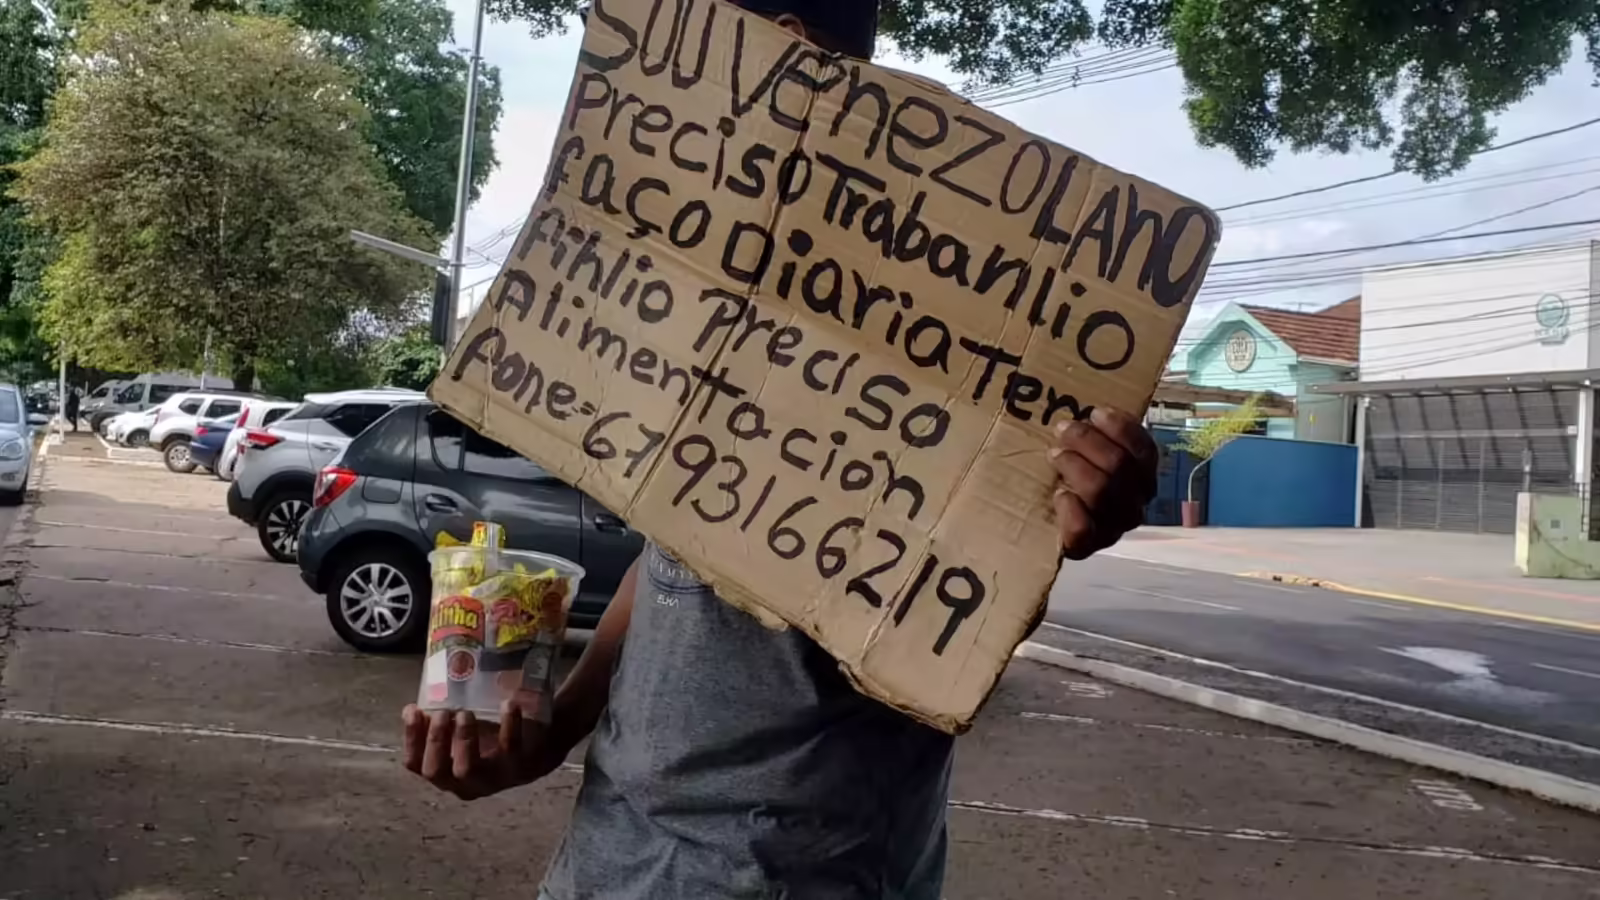 SOU VeneZOLAnO
PrecisoTrabanlio
faço DiariaTem
Fihlio Preciso
Alimentación
fone=67 93166219
inha